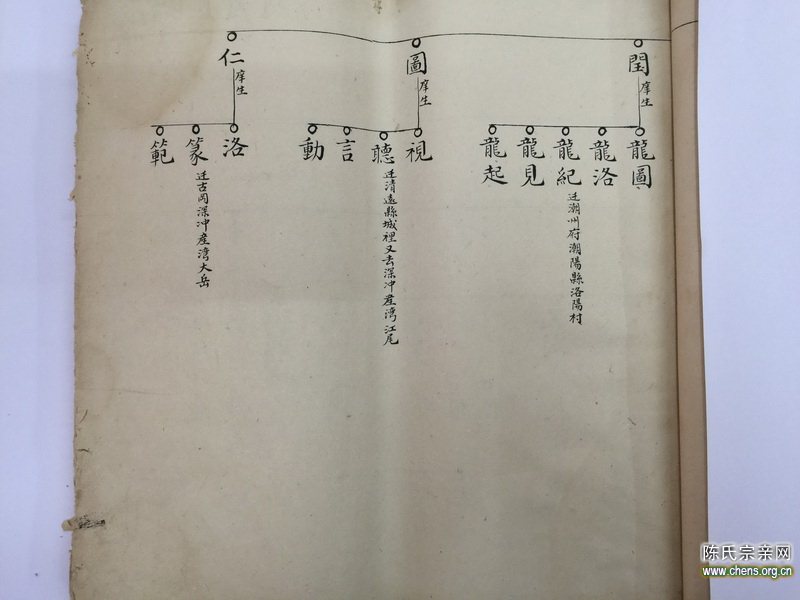 閏
庠生
龍圖
龍洛
龍紀
迁潮州府潮陽縣洛陽村
龍見
龍起
圖
庠生
視
聽
迁清遠縣城裡又去深冲產灣江尾
言
動
仁
庠生
洛
篆
迁古岡深冲產灣大岳
範
陈氏宗亲网
www.chens.org.cn